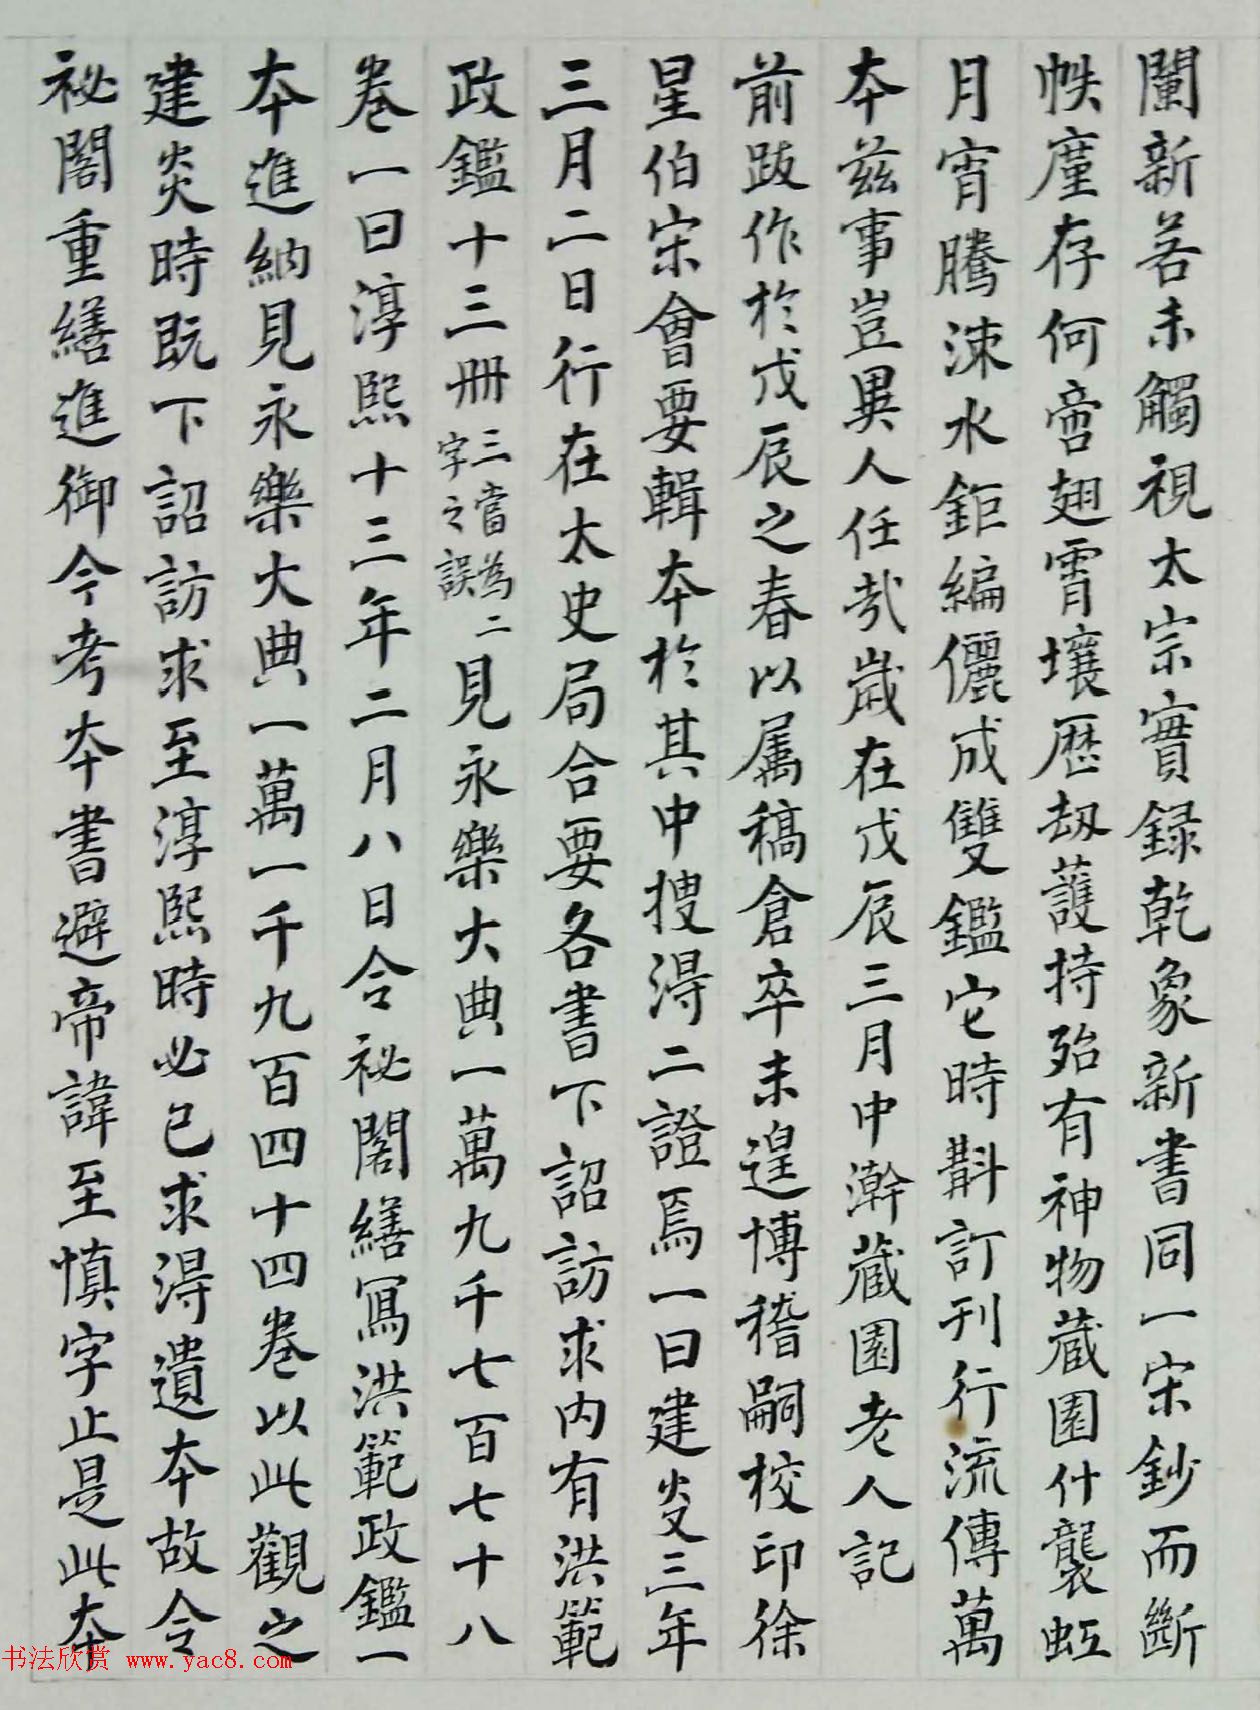 闌新若未觸視太宗實録乾象新書同一宋鈔而斷
帙廑存何啻翅霄壤歴劫護持殆有神物蔵園什襲虹
月宵騰涑水鉅編儷成雙鑑它時斠訂刊行流傳萬
本兹事豈異人任㢤歳在戊辰三月中澣蔵園老人記
前跋作於戊辰之春以属稿倉卒未遑博稽嗣校印徐
星伯宋會要輯本於其中搜淂二證焉一曰建炎三年
三月二日行在太史局合要各書下詔訪求内有洪範
政鑑十三冊三當為二字之誤見永樂大典一萬九千七百七十八
卷一曰淳熙十三年二月八日令祕閣繕寫洪範政鑑一
本進納見永樂大典一萬一千九百四十四卷以此觀之
建炎時既下詔訪求至淳熙時必已求淂遺本故令
祕閣重繕進御今考本書避帝諱至慎字止是此本
书法欣赏 www.yac8.com